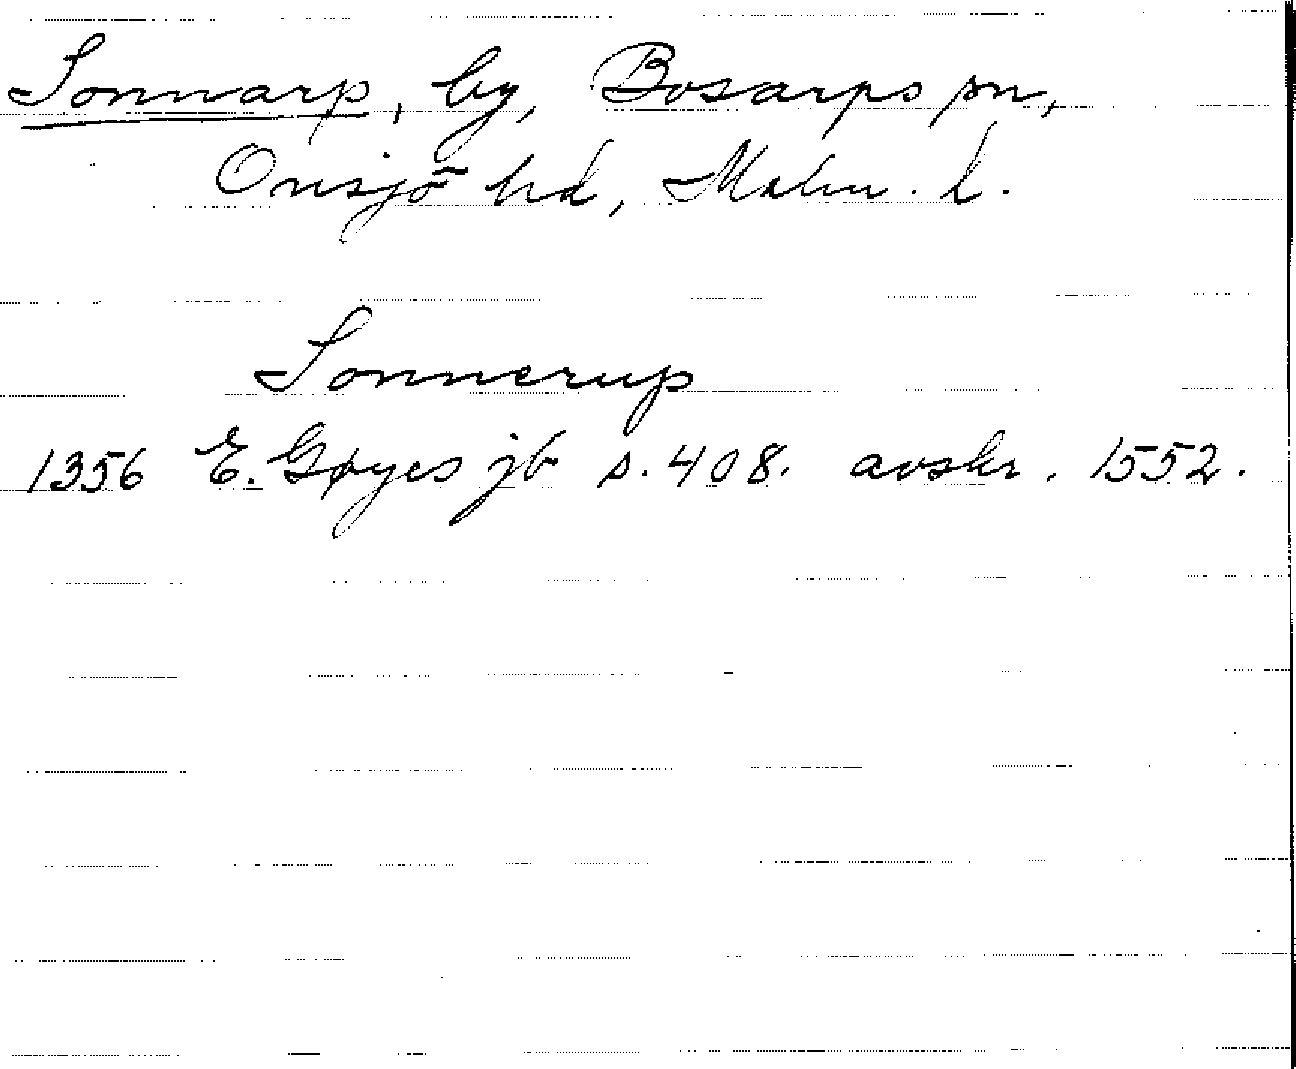 Sonnarp, by, Bosarps sn,
Onsjö hd, Malm. l.
Sonnerup
1356 E. Gøyes jb s. 408. avskr. 1552.